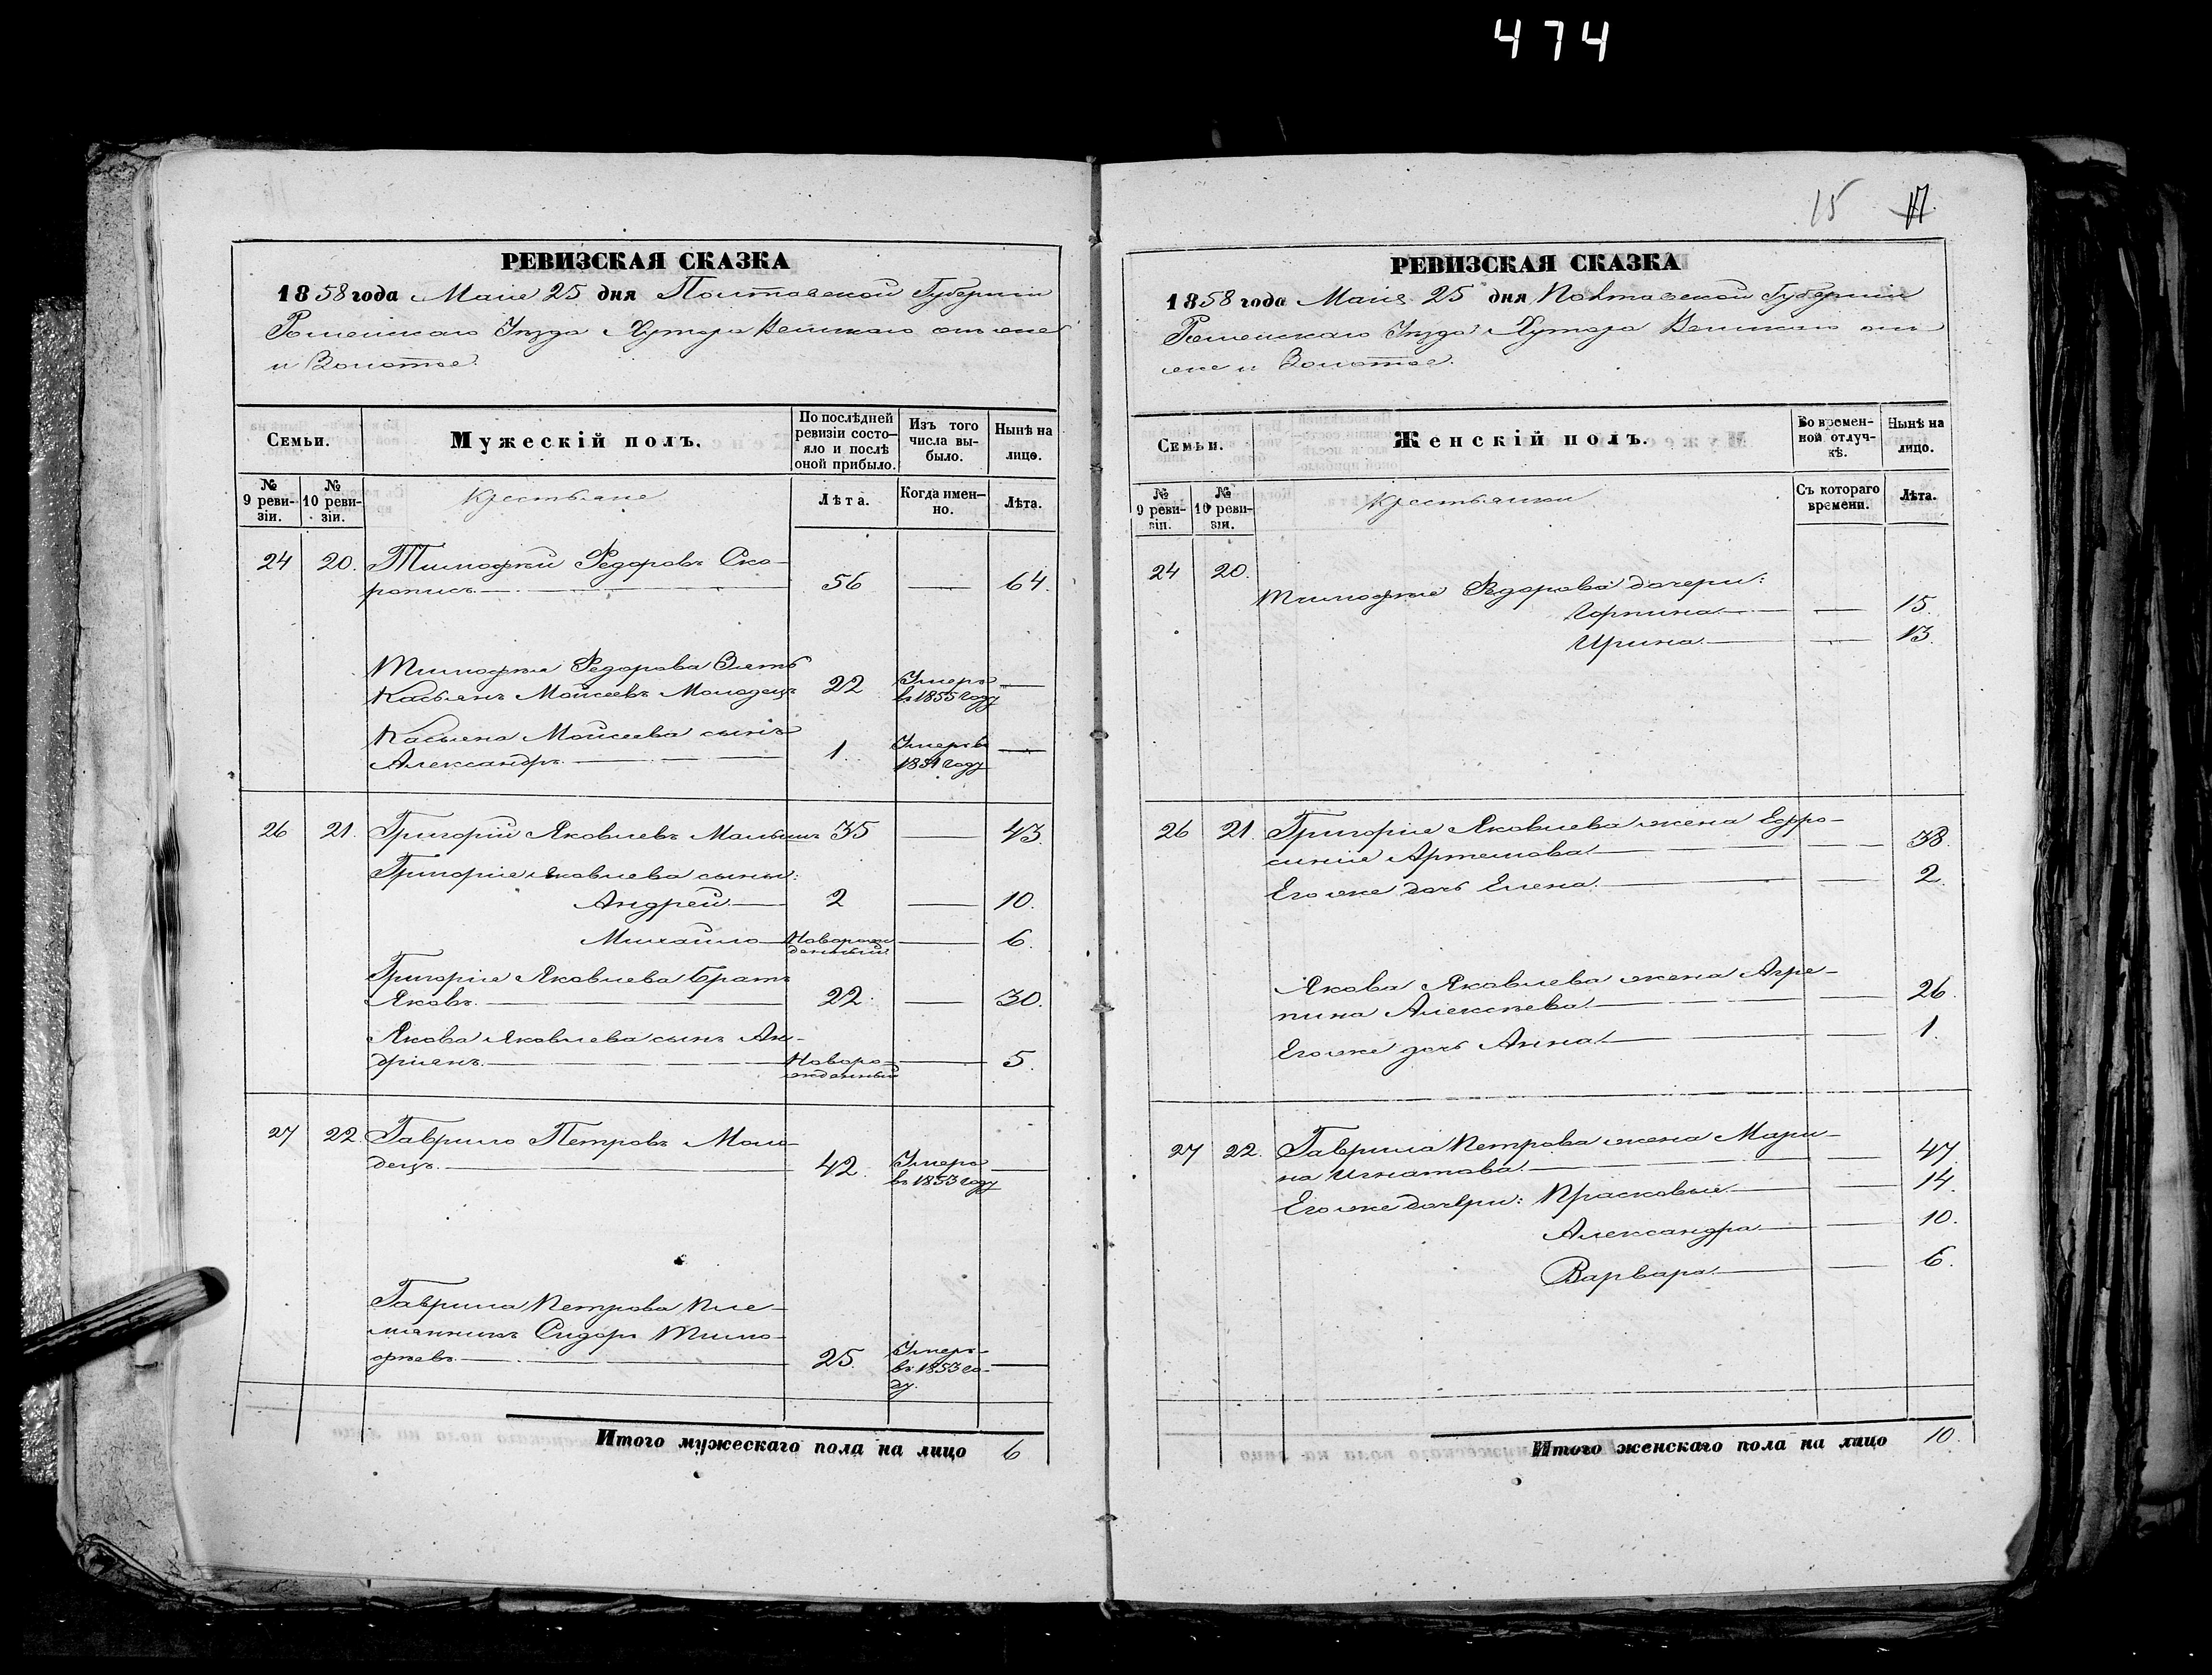 474
15 17
РЕВИЗСКАЯ СКАЗКА
1858 года Мая 25 дня Полтавской Губернiи
Роменскаго Уѣзда Хутора
и Золотое.
Семьи.
Мужескiй полъ.
По послѣдней ревизiи состо-яло и послѣ оной прибыло.
Изъ того числа вы-было.
Нынѣ на лицо.
№ 9 реви-зiи.
№ 10 реви-зiи.
Крестьяне
Лѣта.
Когда имен-но.
Лѣта.
24 20. Тимофѣй Ѳедоровъ Ско-
рописъ 56 — 64.
Тимофѣя Ѳедорова Зять
Касьянъ Моисеевъ Молодецъ 22 Умеръ въ 1855 году —
Касьяна Моисеева сынъ
Александръ 1. Умеръ въ 1851 году —
26 21. Григорiй Яковлевъ Малышъ 35 — 43.
Григорiя Яковлева сыны:
Андрей 2 — 10.
Михайло Новорожденный — 6.
Григорiя Яковлева братъ
Яковъ. 22. — 30.
Якова Яковлева сынъ Ан-
дрiянъ. Новоро-жденный — 5.
27 22. Гаврило Петровъ Моло-
децъ. 42. Умеръ въ 1853 году —
Гаврила Петрова Пле-
мянникъ Сидоръ Тимо-
фѣевъ 25. Умеръ въ 1853 го-ду. —
Итого мужескаго пола на лицо 6
РЕВИЗСКАЯ СКАЗКА
1858 года Мая 25 дня Полтавской Губернiи
Роменскаго Уѣзда Хутора
и Золотое.
Семьи.
Женскiй полъ.
Во времен-ной отлуч-кѣ.
Нынѣ на лицо.
№ 9 реви-зiи.
№ 10 реви-зiи.
Крестьянки
Съ котораго времени.
Лѣта.
24 20.
Тимофѣя Ѳедорова дочери:
Горпина — 15.
Ирина — 13.
26 21. Григорiя Яковлева жена Ефро-
синiя Артемова — 38.
Его же дочь Елена — 2.
Якова Яковлева жена Агре-
пина Алексѣева — 26.
Его же дочь Анна — 1.
27 22. Гаврила Петрова жена Мари-
на Игнатова — 47
Его же дочери: Прасковья — 14.
Александра — 10.
Варвара — 6.
Итого женскаго пола на лицо 10.